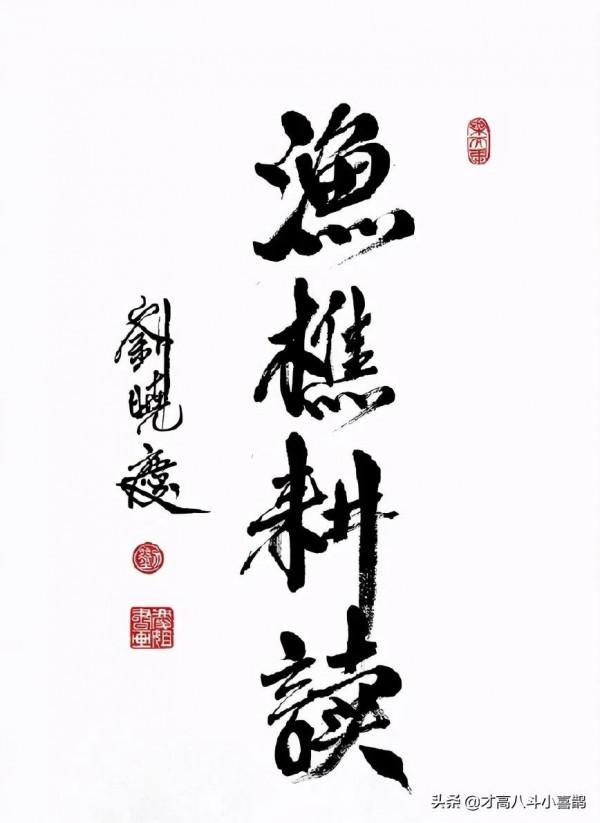 漁樵耕讀
劉曉慶
头条 @才高八斗小喜鹊